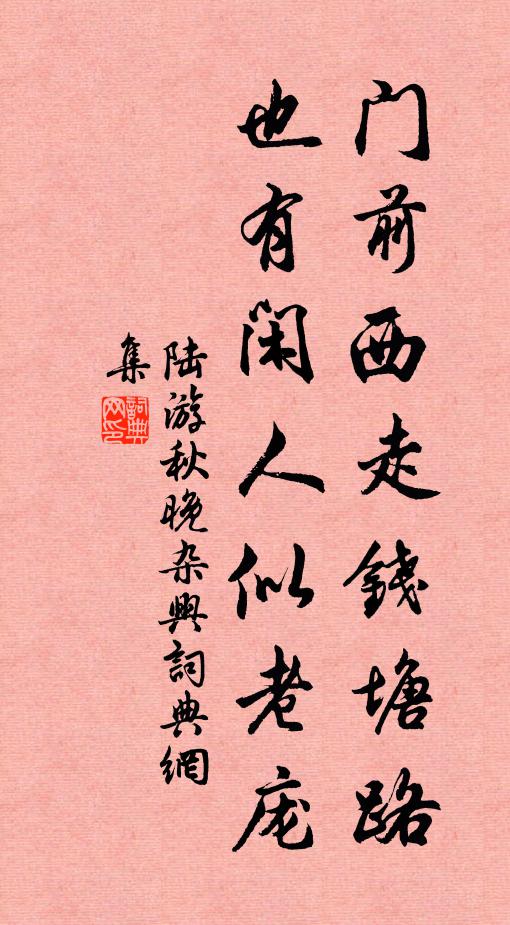 门前西走錢塘路
也有闲人似老庞
陆游秋晚杂興詞典網
集
詞典
网印